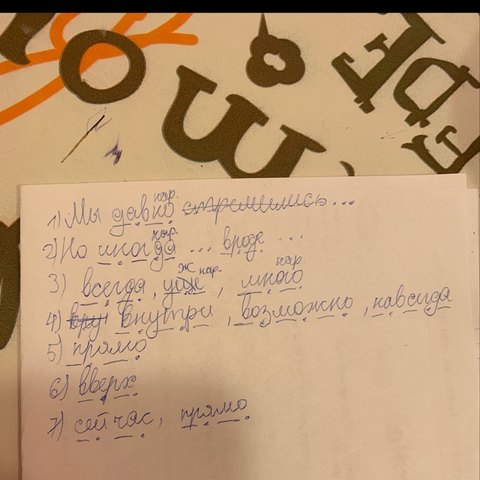 1) Мы давно нар. стремились...
2) Но иногда нар. ... вроде ...
3) всегда, уже нар., много нар.
4) внутри, возможно, навсегда
5) прямо
6) вверх
7) сейчас, прямо